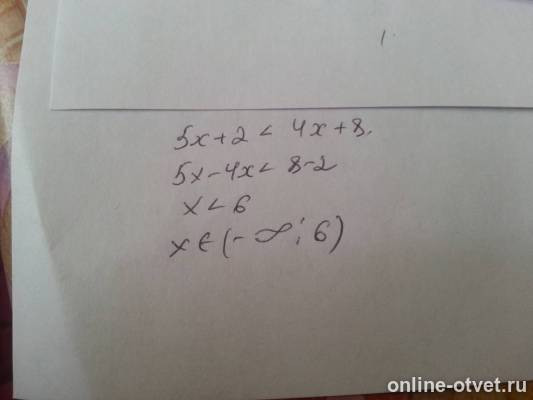 5x+2 < 4x+8.
5x-4x< 8-2
x < 6
x ∈ (-∞; 6)
online-otvet.ru